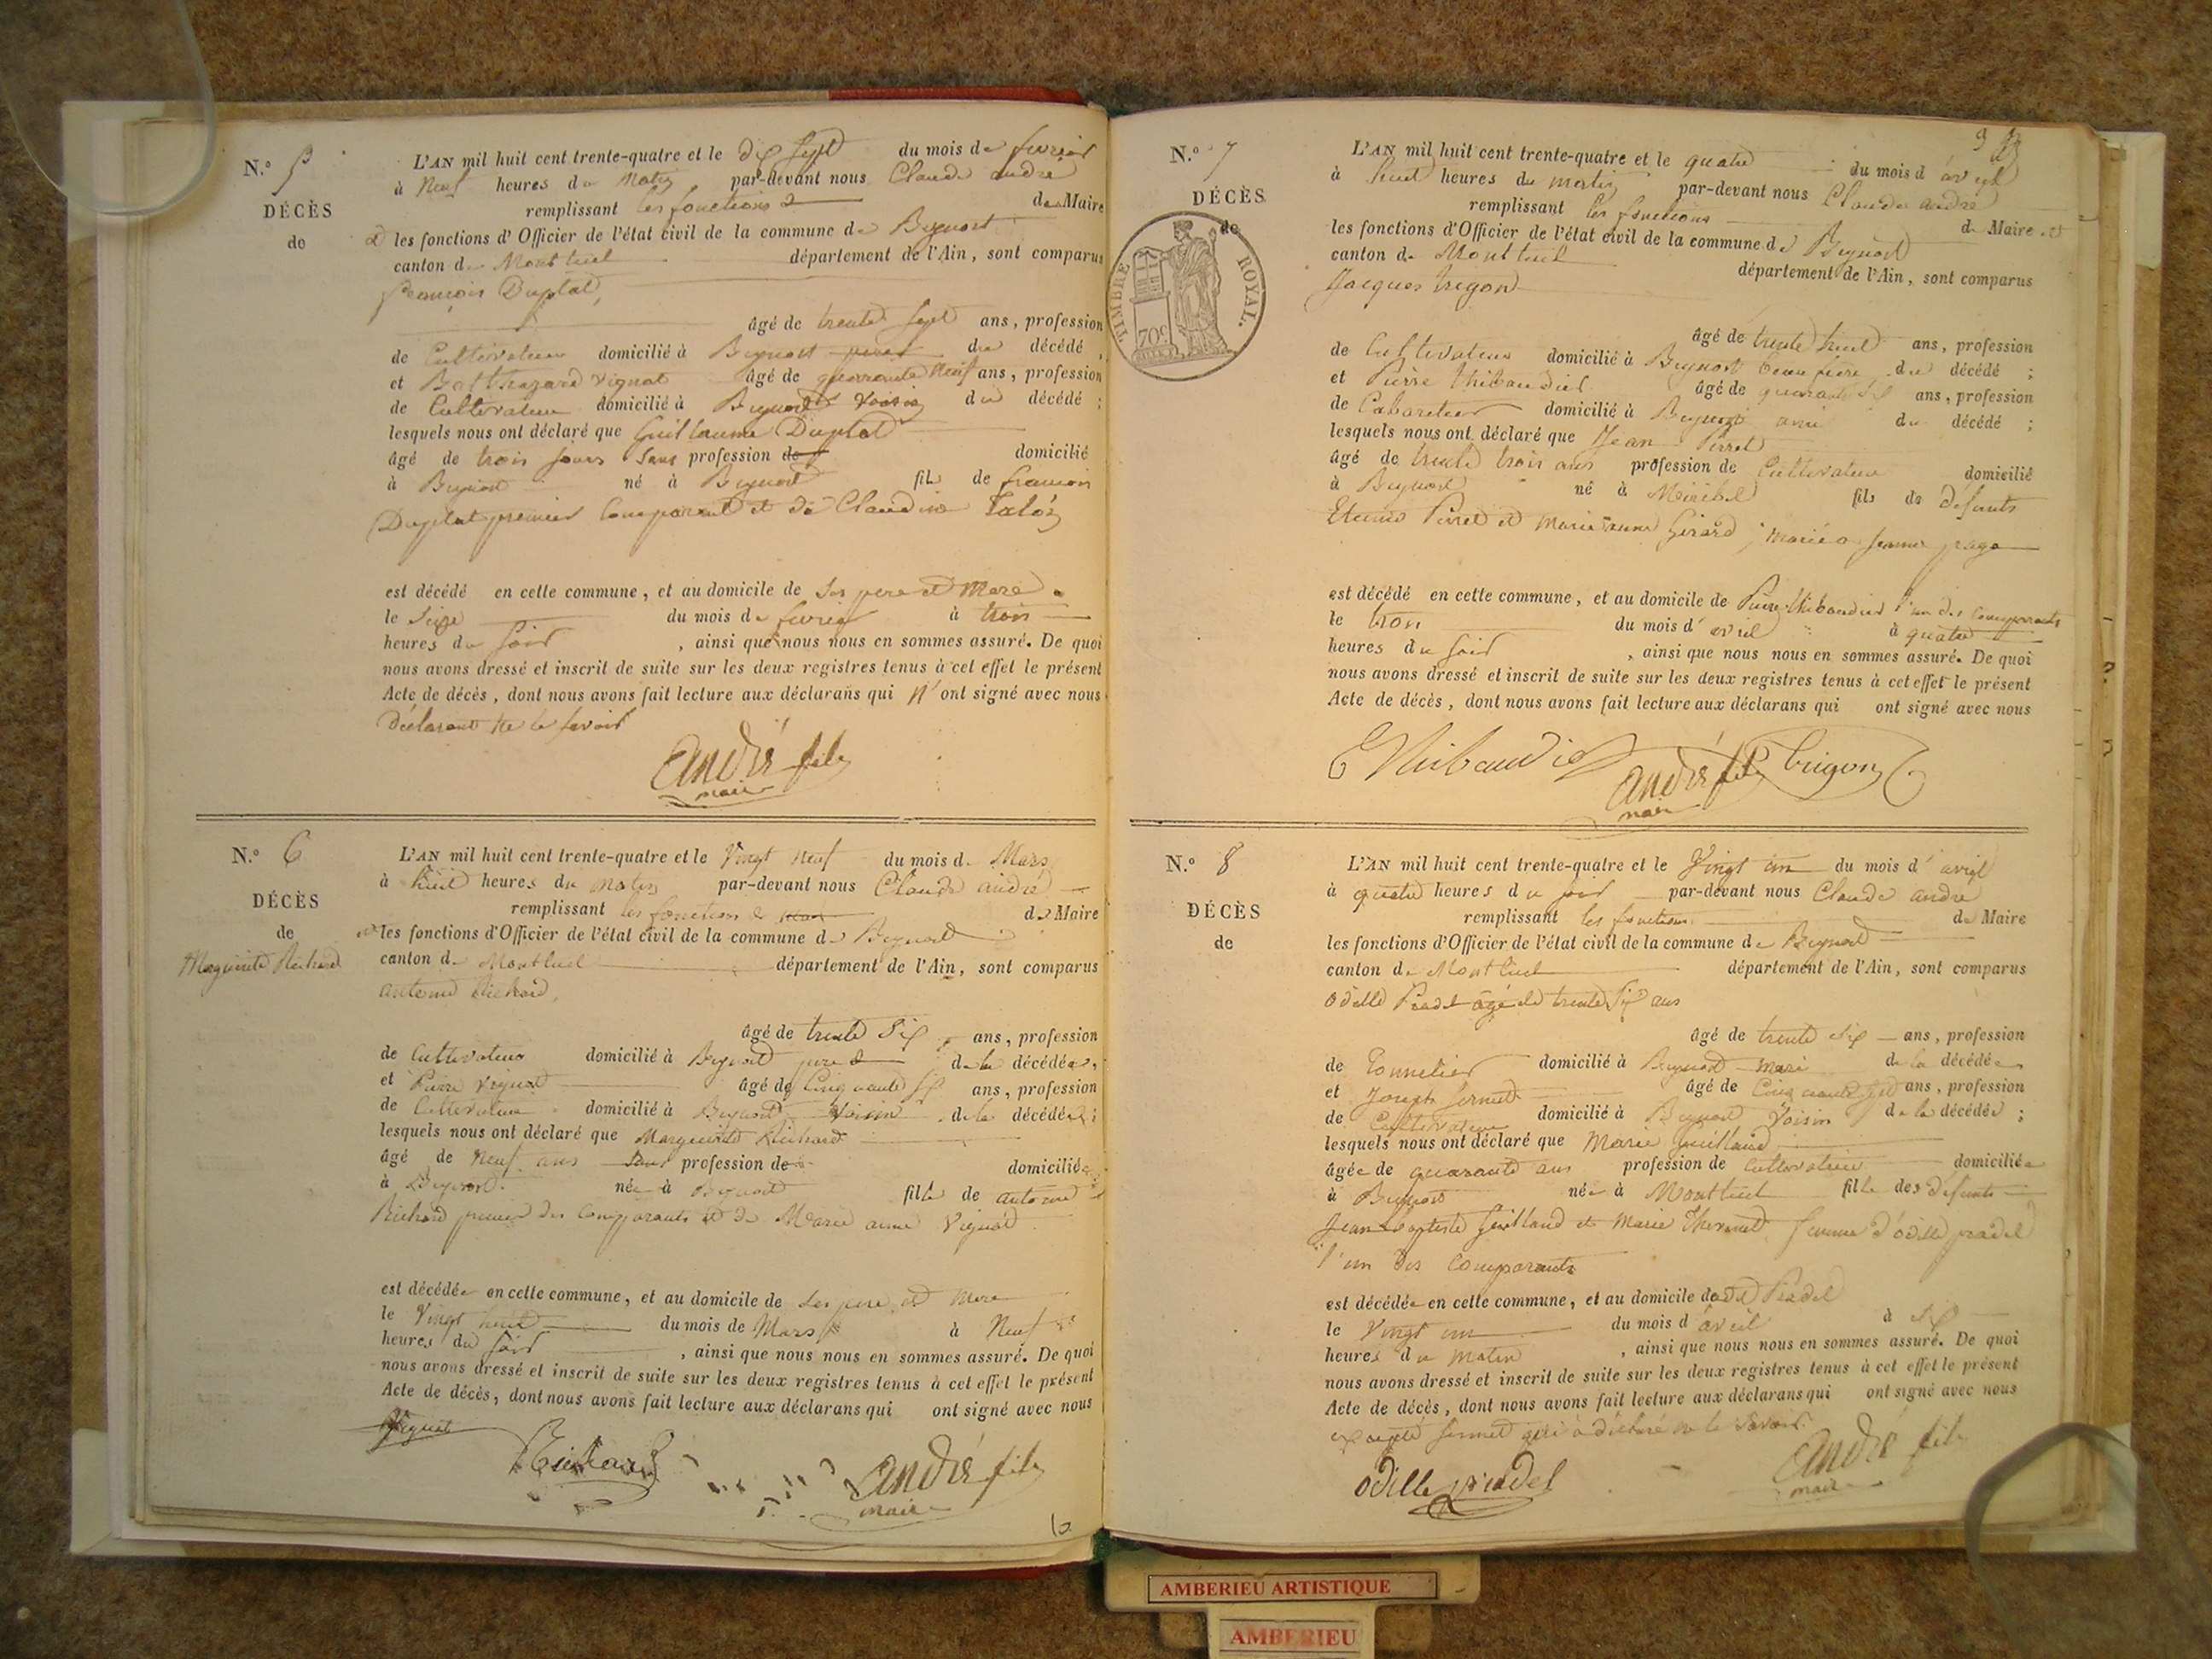 N.° 5
DÉCÈS
de
L'AN mil huit cent trente-quatre et le dix sept du mois de fevrier
à Neuf heures du Matin par-devant nous Claude andré
remplissant les fonctions de Maire
et les fonctions d'Officier de l'état civil de la commune de Beynost
canton de Montluel département de l'Ain, sont comparus
francois Duplat,
âgé de trente sept ans, profession
de Cultivateur domicilié à Beynost pere du décédé,
et Balthazard Vignat âgé de quarante Neuf ans, profession
de Cultivateur domicilié à Beynost Voisin du décédé ;
lesquels nous ont déclaré que Guillaume Duplat
âgé de trois jours Sans profession de domicilié
à Beynost né à Beynost fils de francois
Duplat premier Comparant et de Claudine
est décédé en cette commune, et au domicile de Ses pere et Mere
le Seize du mois de fevrier à trois
heures du Soir, ainsi que nous nous en sommes assuré. De quoi
nous avons dressé et inscrit de suite sur les deux registres tenus à cet effet le présent
Acte de décès, dont nous avons fait lecture aux déclarans qui N'ont signé avec nous
Déclarant Ne le Savoir
andré fils
maire
N.° 6
DÉCÈS
de
Marguerite Richard
L'AN mil huit cent trente-quatre et le Vingt Neuf du mois de Mars
à huit heures du Matin par-devant nous Claude andré
remplissant les fonctions de Maire
et les fonctions d'Officier de l'état civil de la commune de Beynost
canton de Montluel département de l'Ain, sont comparus
antoine Richard,
âgé de trente Six ans, profession
de Cultivateur domicilié à Beynost pere de la décédée,
et Pierre Vignat âgé de Cinquante Six ans, profession
de Cultivateur domicilié à Beynost Voisin de la décédée ;
lesquels nous ont déclaré que Marguerite Richard
âgé de Neuf ans Sans profession de domiciliée
à Beynost née à Beynost fille de antoine
Richard premier des Comparants et de Marie anne Vignat
est décédée en cette commune, et au domicile de Ses pere et Mere
le Vingt huit du mois de Mars à Neuf
heures du Soir, ainsi que nous nous en sommes assuré. De quoi
nous avons dressé et inscrit de suite sur les deux registres tenus à cet effet le présent
Acte de décès, dont nous avons fait lecture aux déclarans qui ont signé avec nous
Vignat Richard andré fils
maire
N.° 7
DÉCÈS
de
TIMBRE ROYAL.
70c
L'AN mil huit cent trente-quatre et le quatre du mois d'avril
à huit heures du matin par-devant nous Claude andré
remplissant les fonctions de Maire et
les fonctions d'Officier de l'état civil de la commune de Beynost
canton de Montluel département de l'Ain, sont comparus
Jacques trigon
âgé de trente huit ans, profession
de Cultivateur domicilié à Beynost beau frere du décédé ;
et Pierre thibaudier âgé de quarante Six ans, profession
de Cabaretier domicilié à Beynost ami du décédé ;
lesquels nous ont déclaré que Jean Perret
âgé de trente trois ans profession de Cultivateur domicilié
à Beynost né à Miribel fils de défunts
Etienne Perret et Marie anne Girard ; marié a jeanne page
est décédé en cette commune, et au domicile de Pierre thibaudier l'un des Comparants
le trois du mois d'avril à quatre
heures du Soir, ainsi que nous nous en sommes assuré. De quoi
nous avons dressé et inscrit de suite sur les deux registres tenus à cet effet le présent
Acte de décès, dont nous avons fait lecture aux déclarans qui ont signé avec nous
Thibaudier andré fils trigon
maire
N.° 8
DÉCÈS
de
L'AN mil huit cent trente-quatre et le Vingt un du mois d'avril
à quatre heures du soir par-devant nous Claude andré
remplissant les fonctions de Maire
les fonctions d'Officier de l'état civil de la commune de Beynost
canton de Montluel département de l'Ain, sont comparus
Odille Pradel âgé de trente Six ans
âgé de trente Six ans, profession
de Tonnelier domicilié à Beynost mari de la décédée
et Joseph fermet âgé de Cinquante Sept ans, profession
de Cultivateur domicilié à Beynost Voisin de la décédée ;
lesquels nous ont déclaré que Marie guilland
âgée de quarante ans profession de Cultivatrice domiciliée
à Beynost née à Montluel fille des défunts
Jean Baptiste Guilland et Marie Thermet femme d'odille pradel
l'un des Comparants
est décédée en cette commune, et au domicile de dit Pradel
le Vingt un du mois d'avril à Six
heures du Matin, ainsi que nous nous en sommes assuré. De quoi
nous avons dressé et inscrit de suite sur les deux registres tenus à cet effet le présent
Acte de décès, dont nous avons fait lecture aux déclarans qui ont signé avec nous
excepté fermet qui a déclaré ne le Savoir
odille pradel andré fils
maire
AMBERIEU ARTISTIQUE
AMBERIEU